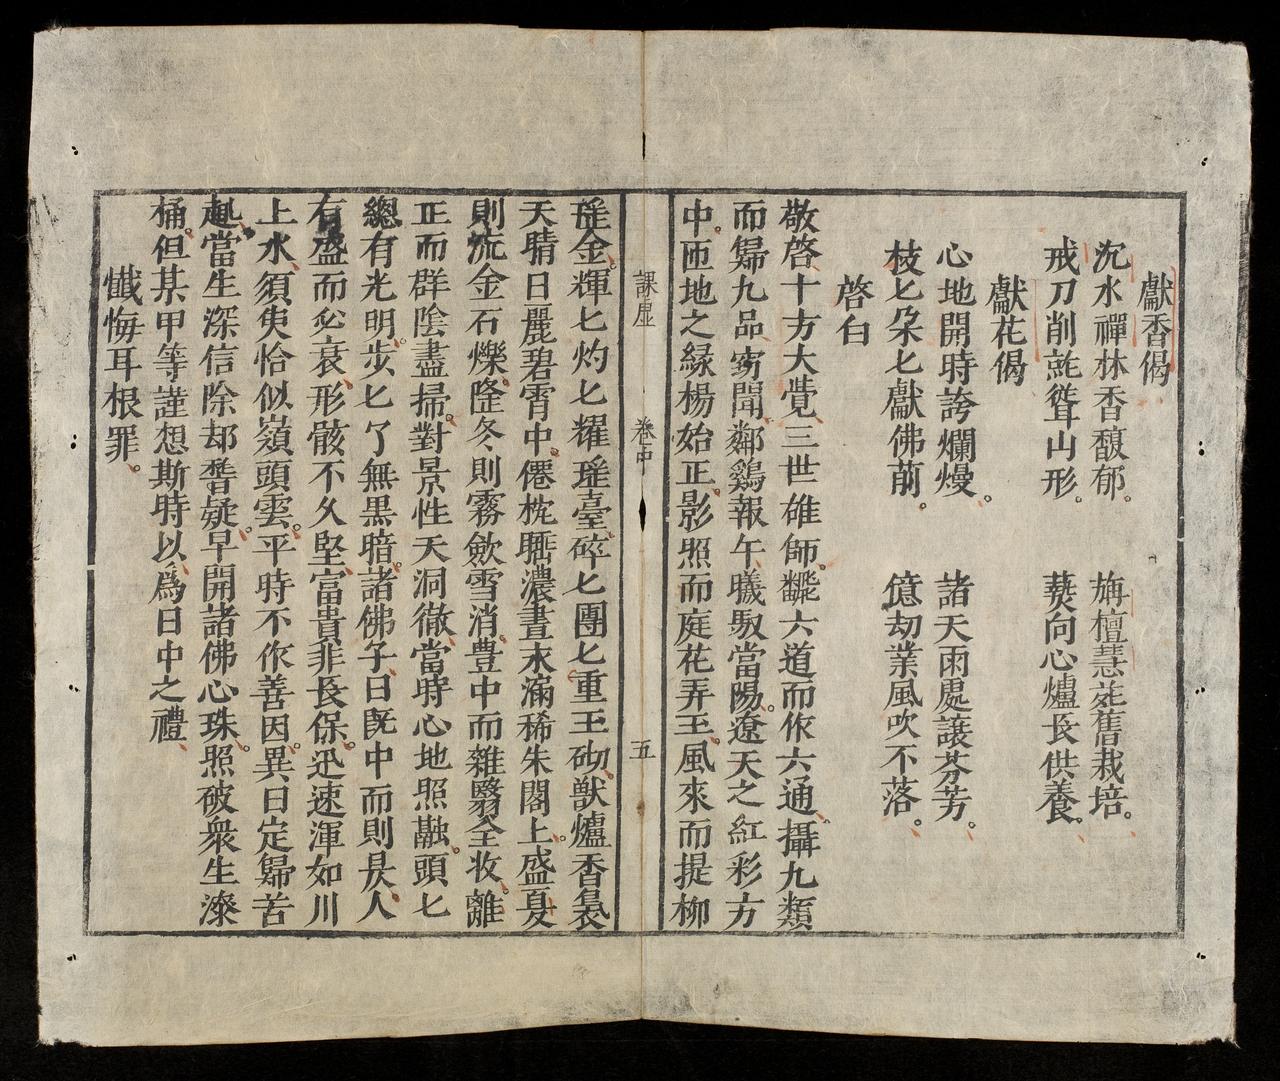 獻香偈
沉水禪林香馥郁。 旃檀慧苑舊栽培。
戒刀削就聳山形。 爇向心爐長供養。
獻花偈
心地開時誇爛熳。 諸天雨處讓芬芳。
枝〻朶〻獻佛前。 億劫業風吹不落。
啓白
敬啓十方大覺三世雄師。觀六道而作六通。攝九類
而歸九品。窃聞鄰鷄報午。曦馭當陽。遼天之紅彩方
中。匝地之緑楊始正。影照而庭花弄玉。風來而提柳
課虛 卷中 五
瑶金。輝〻灼〻耀瑶臺。碎〻團〻重玉砌。獸爐香裊
天晴日麗碧霄中。僊枕瞻濃晝永滿稀朱閣上。盛夏
則流金石爍。隆冬則霧歛雪消。豊中而雜翳全收。離
正而群陰盡掃。對景性天洞徹。當時心地照融。頭〻
總有光明。步〻了無黒暗。諸佛子。日既中而則昃。人
有盛而必衰。形骸不久堅。富貴非長保。迅速渾如川
上水。須臾恰似嶺頭雲。平時不作善因。異日定歸苦
趣。當生深信除却朁疑。早開諸佛心珠。照破衆生漆
桶。但某甲等謹想斯時。以爲日中之禮
懺悔耳根罪。